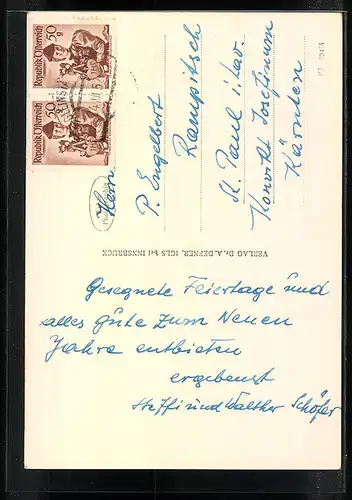 Republik Österreich
50
g
Republik Österreich
50
g
Hern
P. Engelbert
Rampitsch
St. Paul i. Lav.
Konvikt Josefinum
Kärnten
VERLAG Dr. A. DEFNER, IGLS bei INNSBRUCK
Gesegnete Feiertage und
alles Gute zum Neuen
Jahre entbieten
ergebenst
Steffi und Walther Schöfer